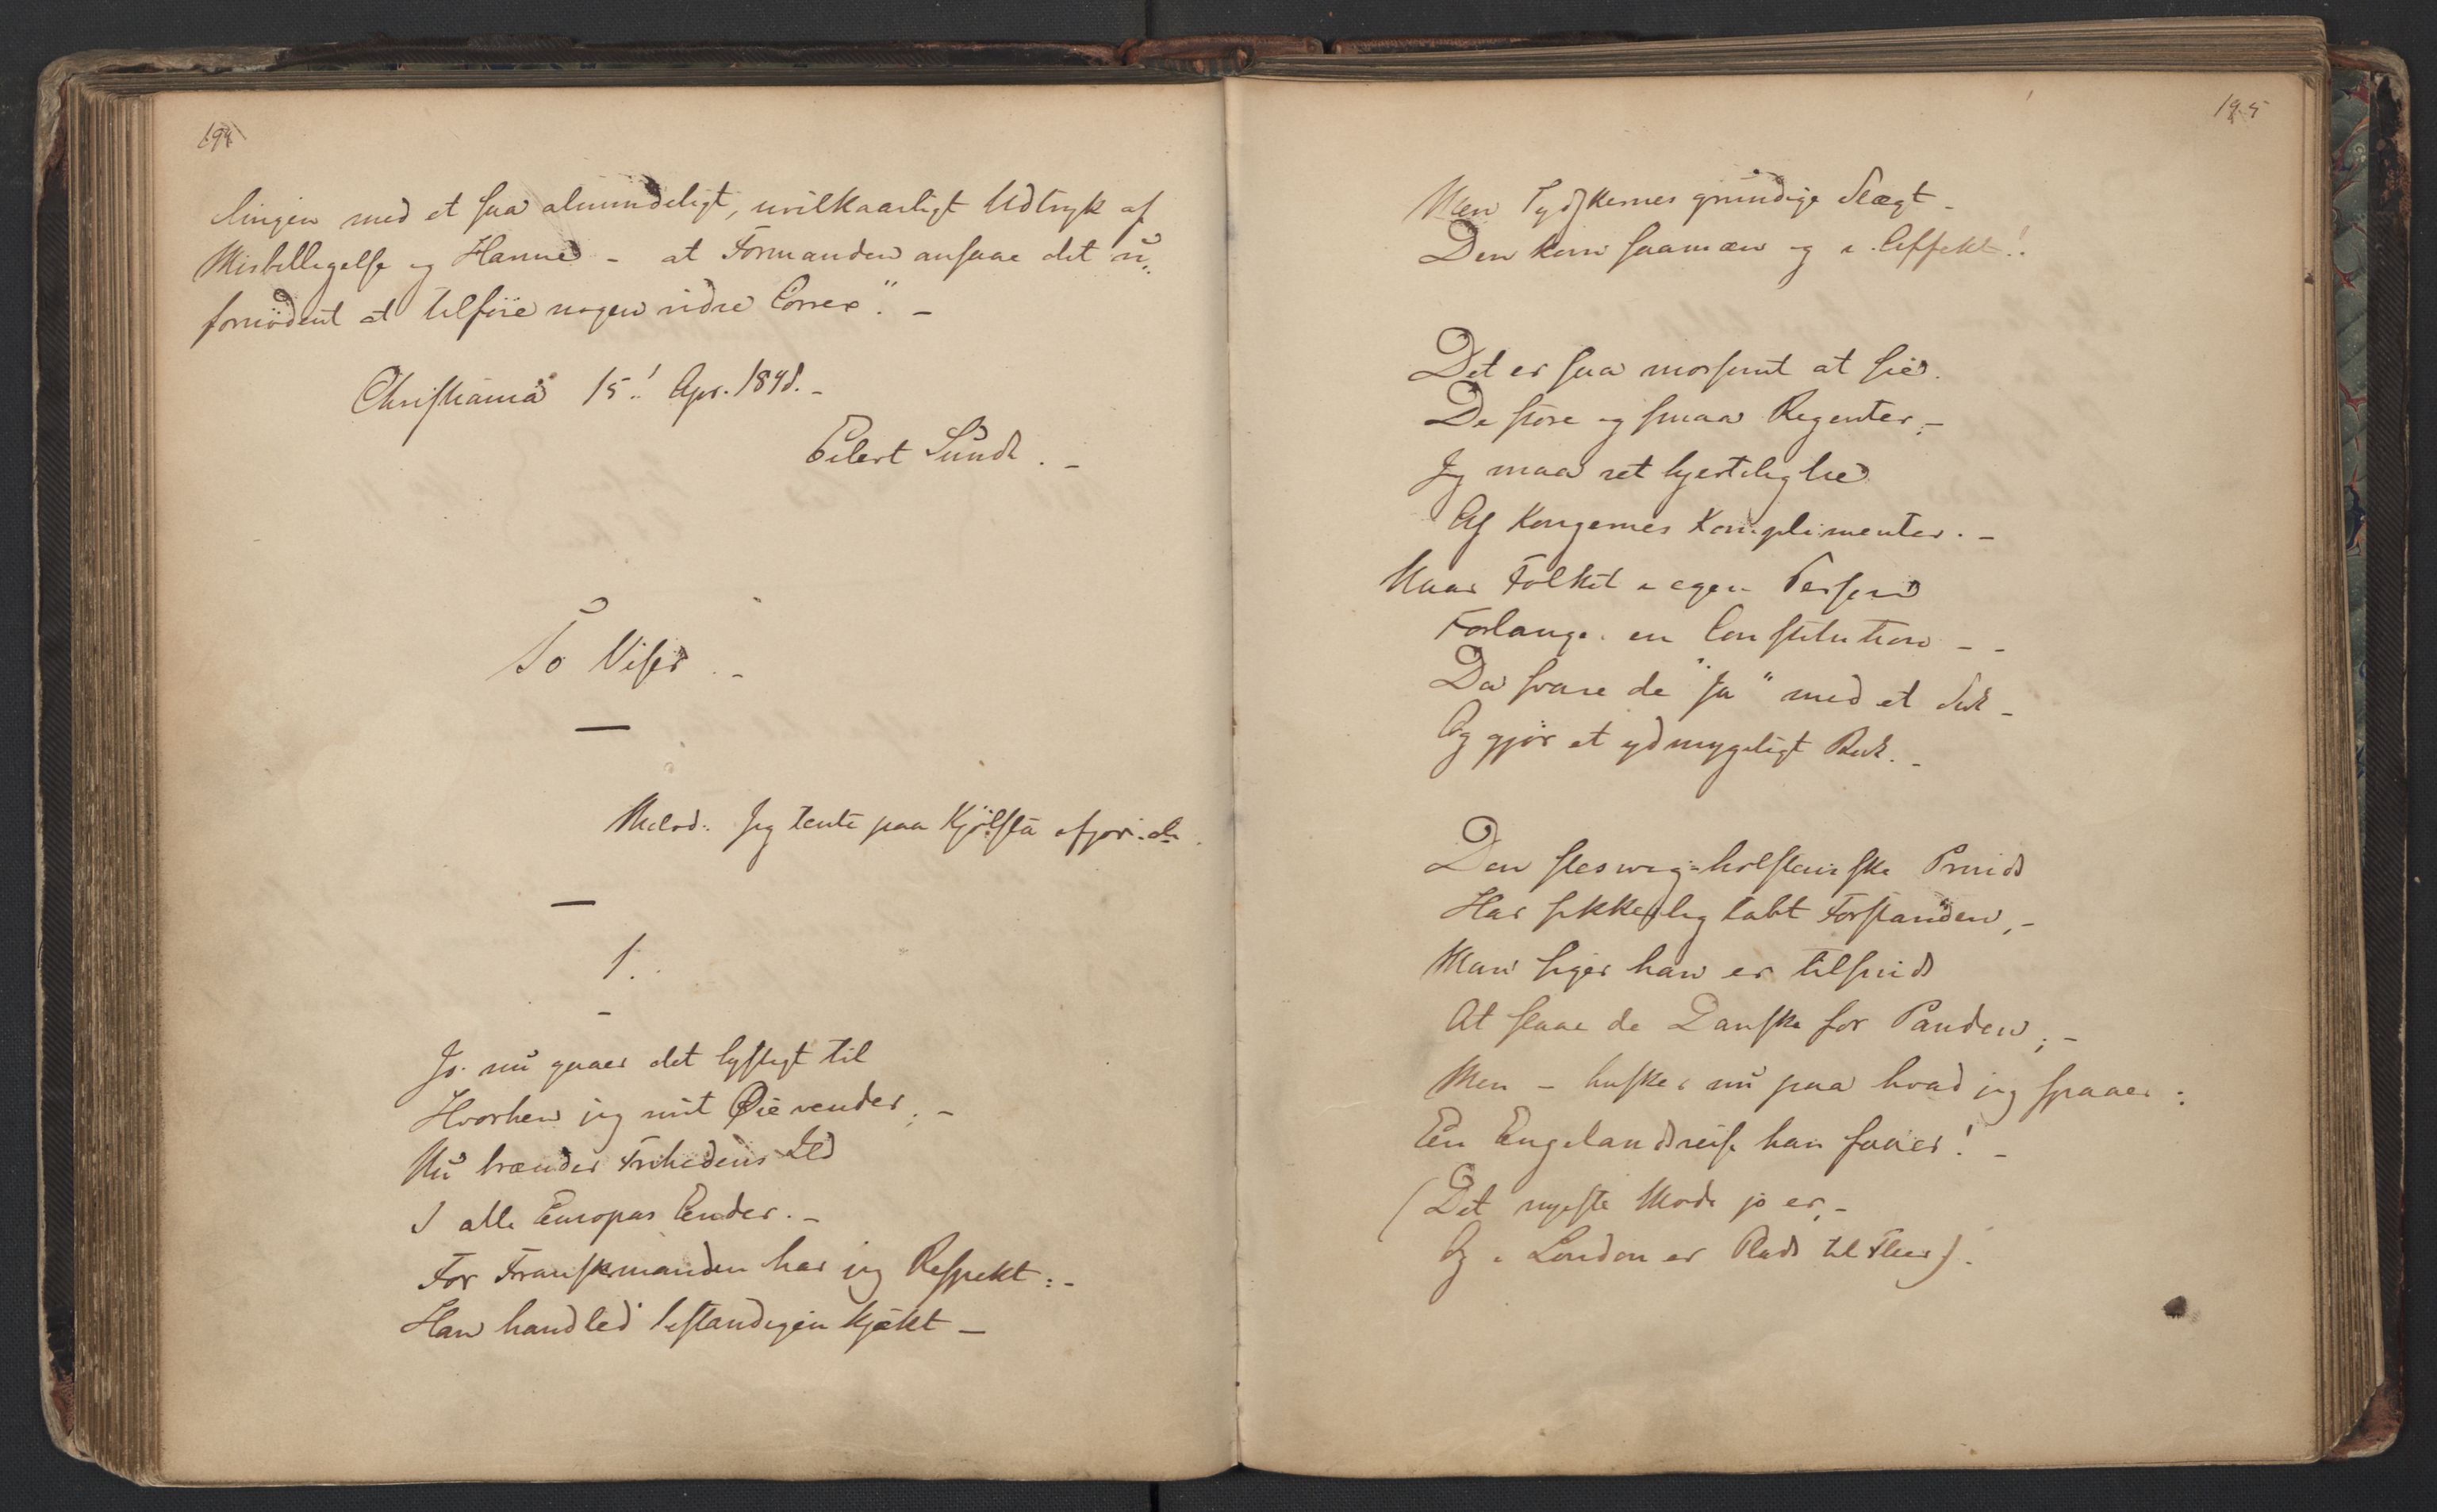 194
lingen med et saa almindeligt, uvilkaarligt Udtryk af
Misbilligelse og Harme - at Formanden ansaae det u-
fornödent at tilföie nogen vidre Correx". -
Christiania 15! Apr. 1848. -
Eilert Sundt. -
To Viser. -
Melod: Jeg tente paa Kjølsta ifjor. etc.
1.
Jo. nu gaaer det lystigt til
Hvorhen jeg mit Øie vender; -
Nu brænder Frihedens Ild
I alle Europas Ender. -
For Franskmanden har jeg Respekt: -
Han handled' bestandigen kjækt -
195
Men Tydskernes grundige Slægt -
Den kom saamæn og i Affekt!
Det er saa morsomt at see.
De store og smaa Regenter; -
Jeg maa ret hjertelig lee
Af Kongernes Komplimenter. -
Naar Folket i egen Person
Forlanger en Constitution - -
Da svare de "Ja" med et Suk -
Og gjør et ydmygeligt Buk. -
Den slesvig-holstenske Prinds
Har sikkerlig tabt Forstanden, -
Man siger han er tilsinds
At slaae de Danske for Panden; -
Men - husker nu paa hvad jeg spaaer:
En Engelandsreise han faaer! -
(Det nyeste Mode jo er, -
Og i London er Plads til Fleer).